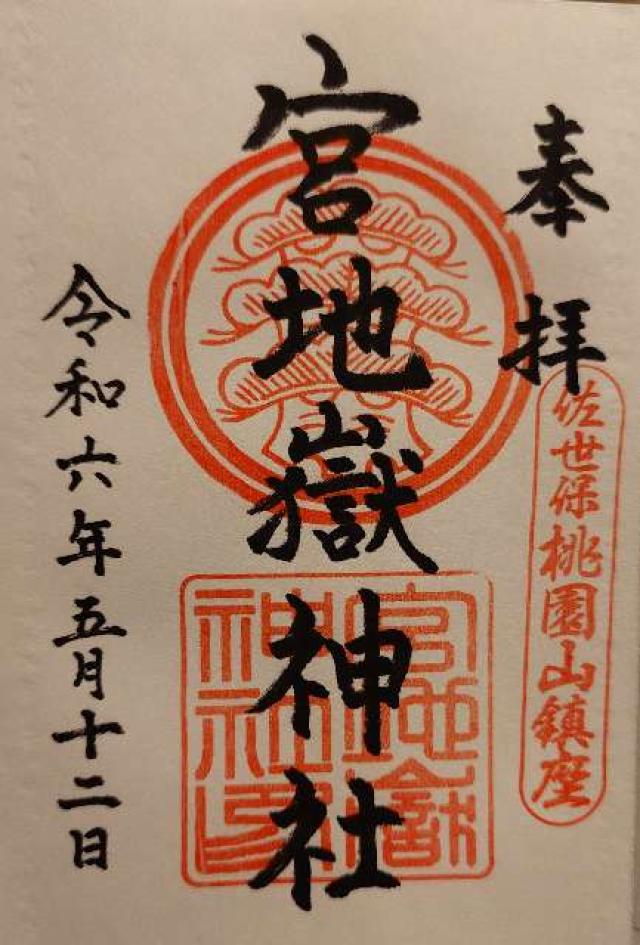 奉拝
佐世保桃園山鎮座
宮地嶽神社
宮地嶽神社印
令和六年五月十二日